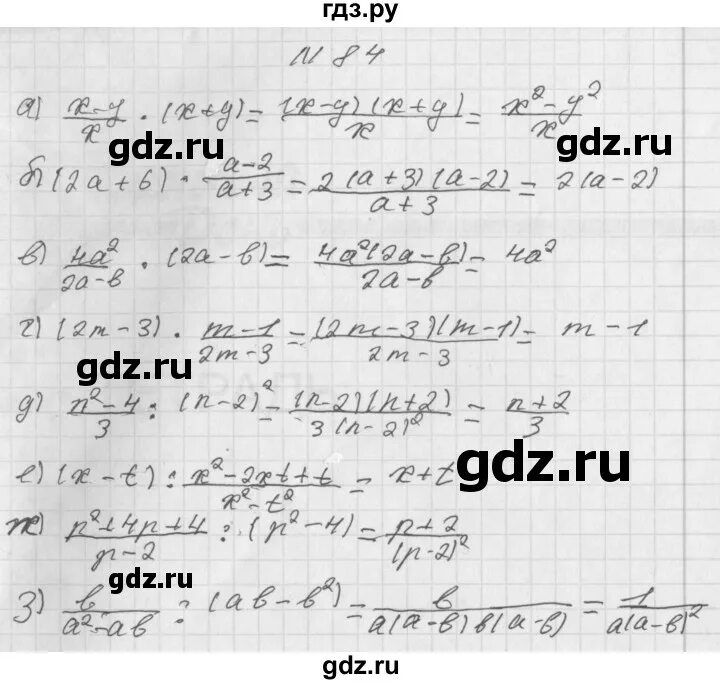 гдз.ру
N 84
а) (x-y)/x · (x+y) = (x-y)(x+y)/x = (x²-y²)/x
gdz.ru gdz.ru
б) (2a+6) · (a-2)/(a+3) = 2(a+3)(a-2)/(a+3) = 2(a-2)
в) 4a²/(2a-b) · (2a-b) = 4a²(2a-b)/(2a-b) = 4a²
gdz.ru gdz.ru
г) (2m-3) · (m-1)/(2m-3) = (2m-3)(m-1)/(2m-3) = m-1
д) (n²-4)/3 : (n-2)² = (n-2)(n+2)/3(n-2)² = (n+2)/3
gdz.ru gdz.ru
е) (x-t) : (x²-2xt+t)/(x²-t²) = x+t
ж) (p²+4p+4)/(p-2) : (p²-4) = (p+2)/(p-2)²
gdz.ru gdz.ru
з) b/(a²-ab) : (ab-b²) = b/a(a-b)b(a-b) = 1/a(a-b)²
gdz.ru